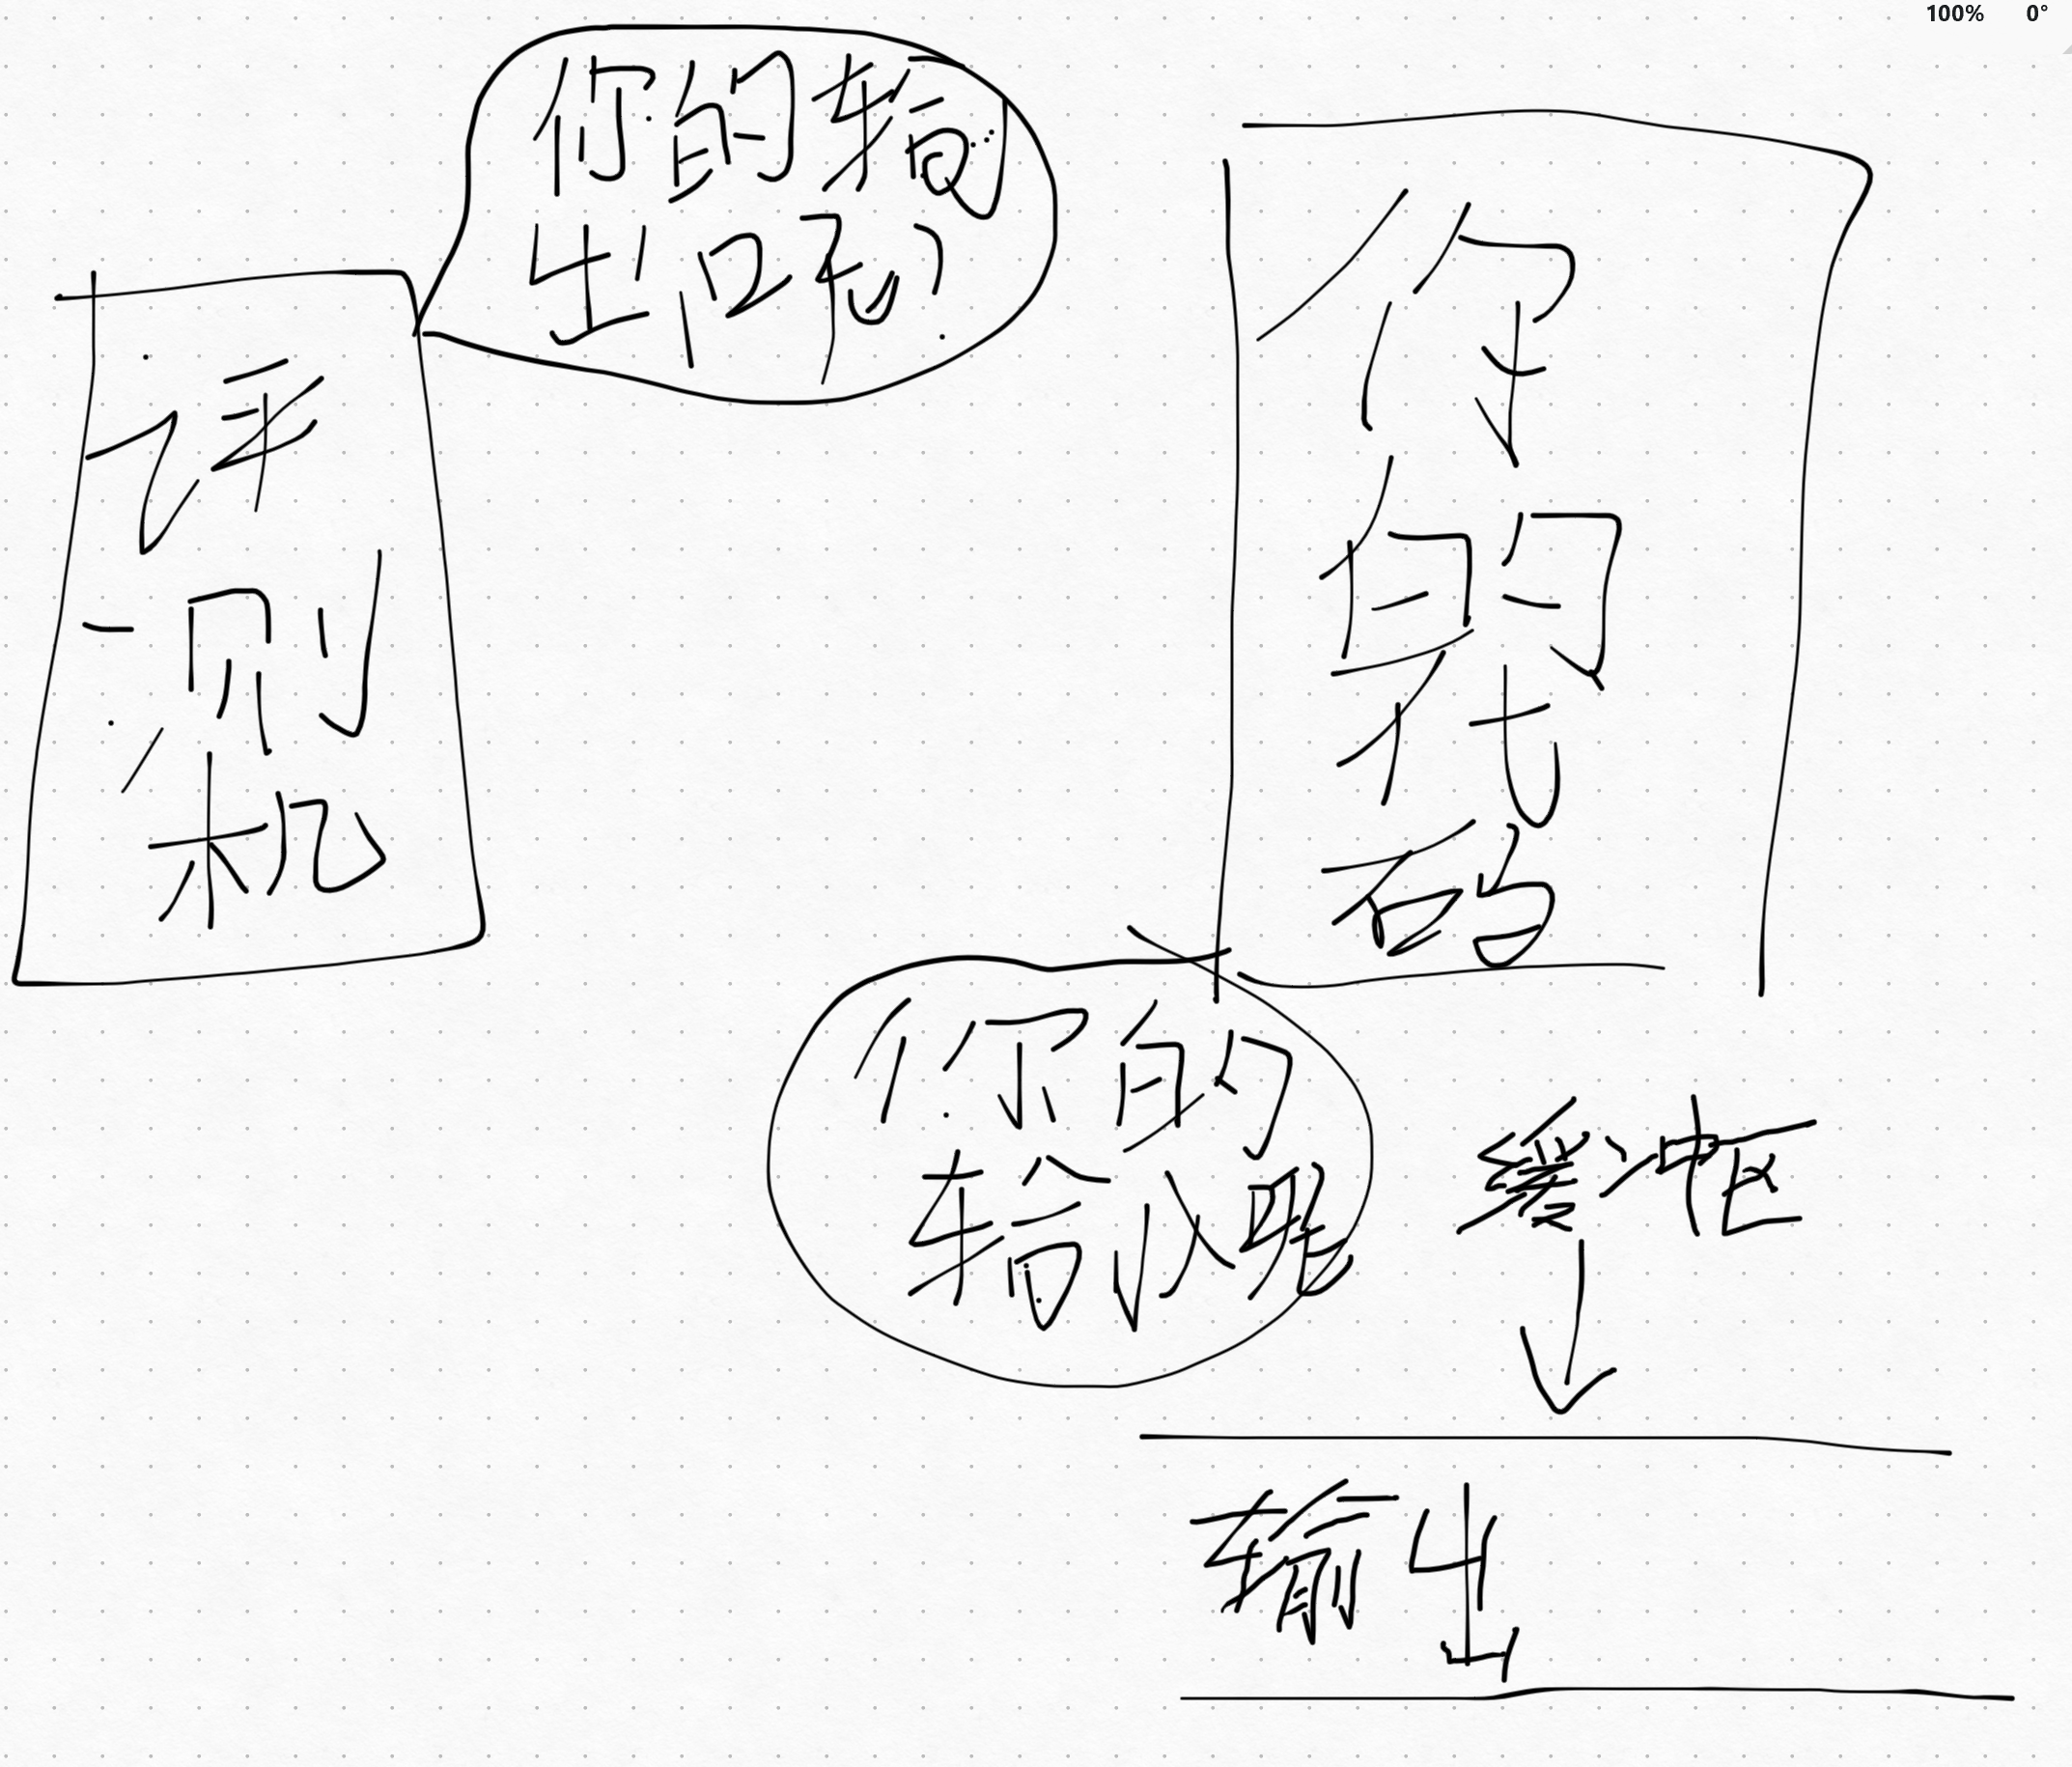 100% 0°
你的输
出呢?
评
测
机
你
的
代
码
你的
输入呢
缓冲区
输出